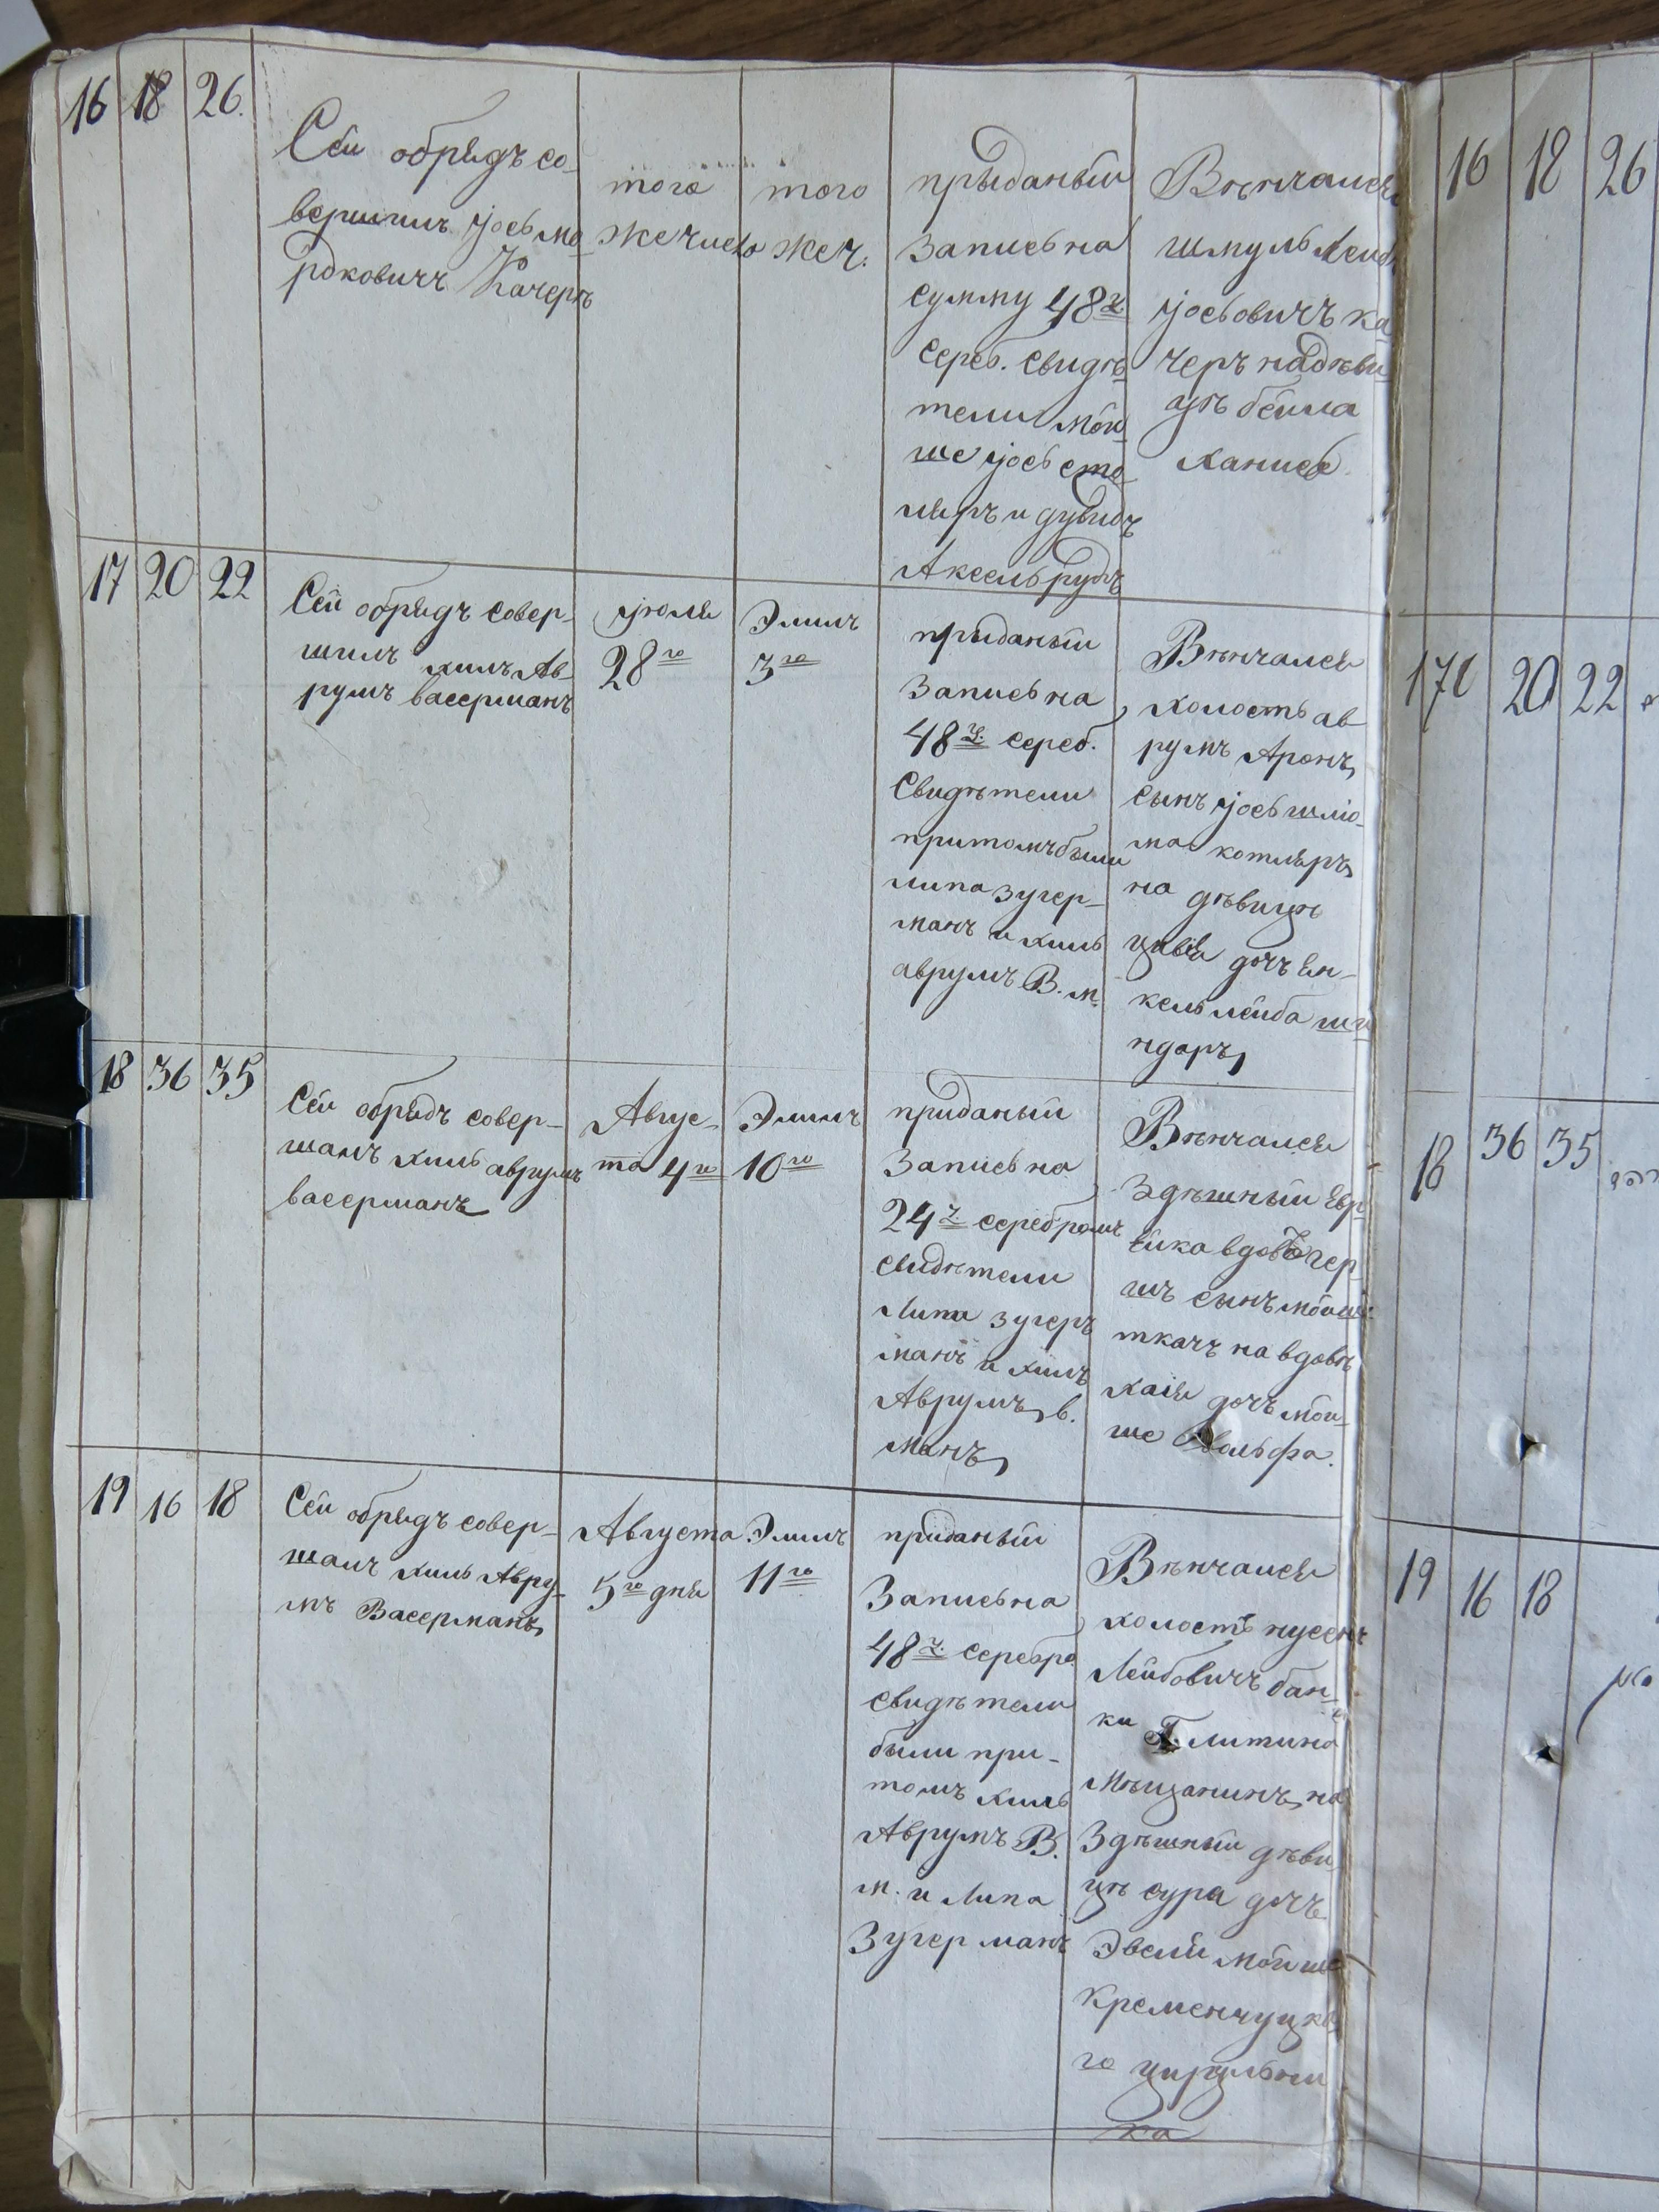 16 18 26.
Сей обрядъ со-
вершилъ Іось Мо
рдковичъ Качеръ
того
же числа
того
же ч.
прыданый
запись на
сумму 48 ч.
сереб. свидѣ-
тели Мой-
ше Іось сто-
ляръ и Дувидъ
Аксельрудъ
Вѣнчался
Шмуль Лейб
Іосьовичъ Ка
черъ на дѣви-
цѣ Бейла
Ханися.
17 20 22
Сей обрядъ совер-
шилъ Хилъ Ав-
румъ Васерманъ
Іюля
28го
Элилъ
3го
прыданый
запись на
48 ч. сереб.
Свидѣтели
притомъ были
Липа Зугер-
манъ и Хиль
Аврумъ В. м.
Вѣнчался
холость Ав
румъ Аронъ,
сынъ Іось Шлio-
ма Котляръ,
на дѣвицѣ
Цивія дочъ Ен-
кель Лейба Ши
ндоръ,
18 36 35
Сей обрядъ совер-
шалъ Хиль Аврумъ
Васерманъ
Авгус-
та 4го
Элилъ
10го
приданый
запись на
24 ч. серебромъ
свидѣтели
Липа Зугеръ
манъ и Хилъ
Аврумъ, В.
манъ,
Вѣнчался
Здѣшный Евр-
ейка вдовъ Гер-
шъ сынъ Мойше
ткачъ на вдовѣ
Хаія дочъ Мой-
ше Вольфа.
19 16 18
Сей обрядъ совер-
шалъ Хиль Авру-
мъ Васерманъ,
Августа
5го дня
Элилъ
11го
приданый
Запись на
48 ч. серебро.
свидѣтели
были при-
томъ Хиль
Аврумъ В.
м. и Липа
Зугерманъ
Вѣнчался
холость Нусенъ
Лейбовичъ Бан-
ки Г. Литина
Мѣщанинъ, на
Здѣшный дѣви
цѣ Сура дочъ
Эвели Мойше
Кременчуцка
го цирульни
ка
16 18 26
17 20 22
18 36 35
19 16 18